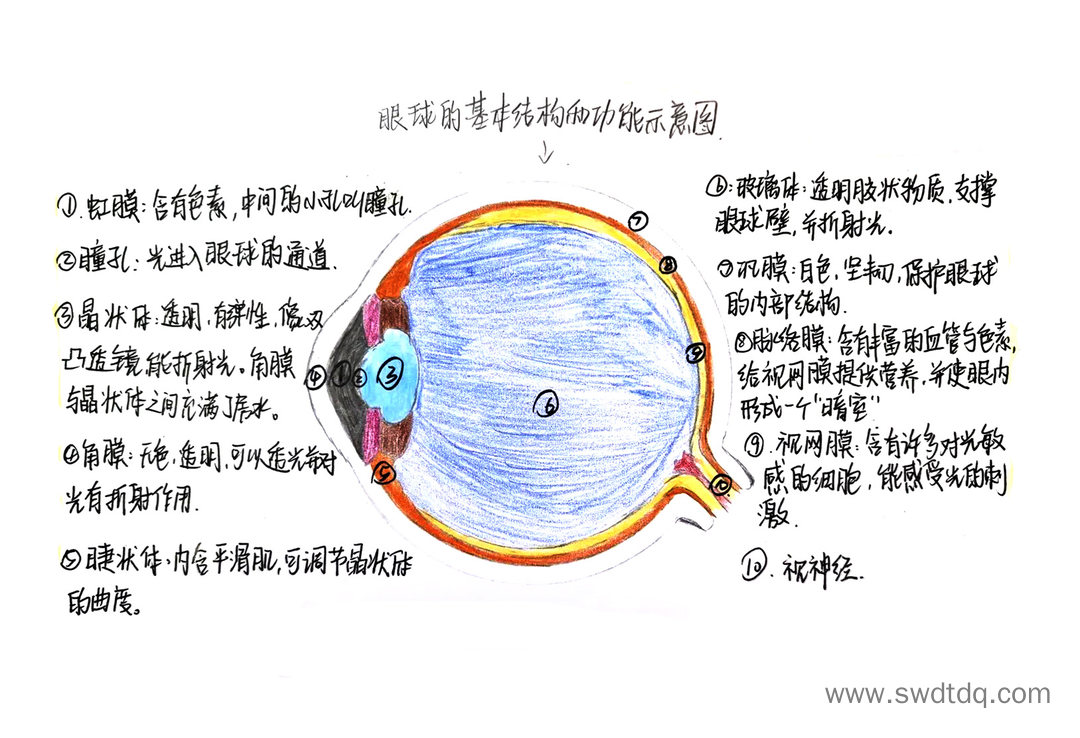 眼球的基本结构和功能示意图
①.虹膜:含有色素,中间的小孔叫瞳孔.
②瞳孔:光进入眼球的通道.
③晶状体:透明,有弹性,像双
凸透镜能折射光。角膜
与晶状体之间充满了房水。
④角膜:无色,透明,可以透光并对
光有折射作用.
⑤睫状体:内含平滑肌,可调节晶状体
的曲度。
⑥:玻璃体:透明胶状物质,支撑
眼球壁,并折射光.
⑦巩膜:白色,坚韧,保护眼球
的内部结构.
⑧脉络膜:含有丰富的血管与色素,
给视网膜提供营养,并使眼内
形成一个"暗室"
⑨.视网膜:含有许多对光敏
感的细胞,能感受光的刺
激.
⑩.视神经.
④ ① ② ③
⑤
⑥
⑦
⑧
⑨
⑩
www.swdtdq.com